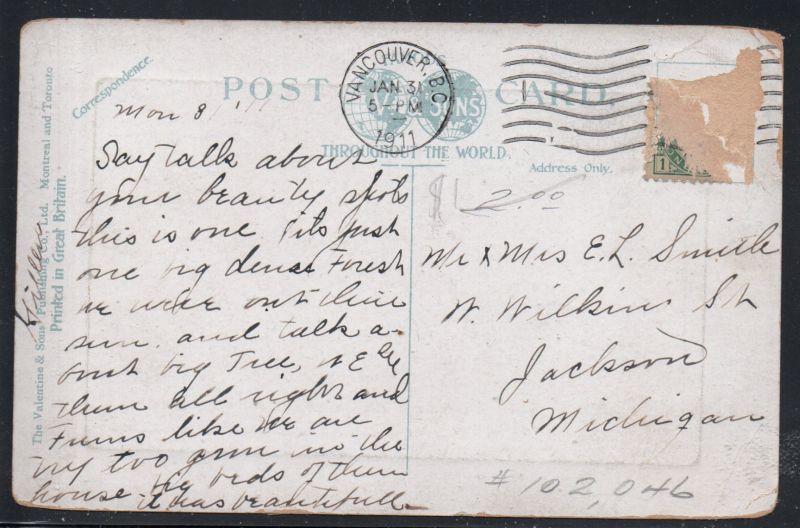 Correspondence.
POST CARD.
VALENTINE & SONS
THROUGHOUT THE WORLD.
Address Only.
VANCOUVER, B.C.
JAN 31
5 - PM
1911
1
The Valentine & Sons' Publishing Co., Ltd. Montreal and Toronto
Printed in Great Britain.
Mon
Say talk about
your beauty spots
this is one. its just
one big dense Forest
we were out their
sun. and talk a-
bout big Tree,
them all right and
Furns like we are
try two grow in the
house big beds of them
it was beautifull
$1 2.00
Mr & Mrs E. L. Smith
W. Wilkins St
Jackson
Michigan
# 102,046